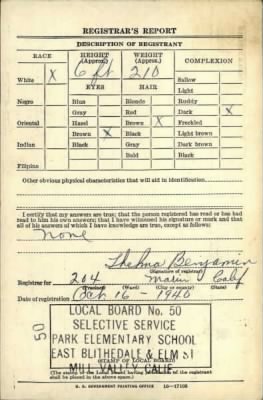 REGISTRAR'S REPORT
DESCRIPTION OF REGISTRANT
RACE HEIGHT (Approx.) WEIGHT (Approx.) COMPLEXION
White X 6 ft 210 Sallow
EYES HAIR Light
Negro Blue Blonde Ruddy
Gray Red Dark X
Oriental Hazel Brown X Freckled
Brown X Black Light brown
Indian Black Gray Dark brown
Bald Black
Filipino
Other obvious physical characteristics that will aid in identification
I certify that my answers are true; that the person registered has read or has had
read to him his own answers; that I have witnessed his signature or mark and that
all of his answers of which I have knowledge are true, except as follows:
None
Thelma Benjamin
(Signature of registrar)
Registrar for 204 Marin Calif
(Precinct) (City or county) (State)
Date of registration Oct 16 - 1940
LOCAL BOARD No. 50
SELECTIVE SERVICE
PARK ELEMENTARY SCHOOL
EAST BLITHEDALE & ELM St
MILL VALLEY CALIF.
50
(STAMP OF LOCAL BOARD)
(The stamp of the Local Board having jurisdiction of the registrant
shall be placed in the above space.)
U. S. GOVERNMENT PRINTING OFFICE 16—17105